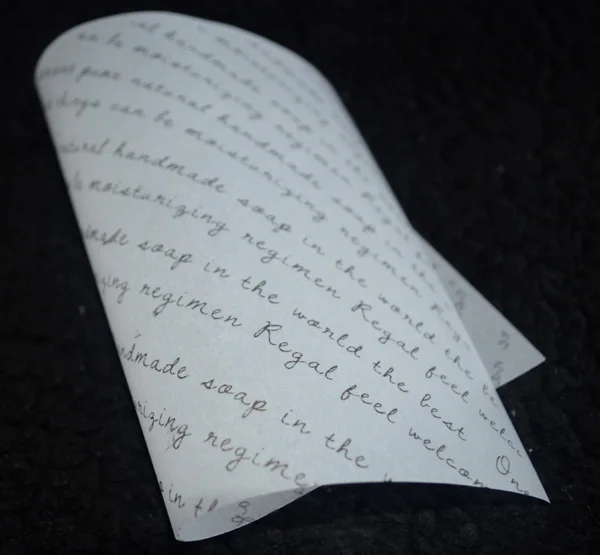 handmade soap in
can be moisturizing regimen
pure natural handmade soap in the
days can be moisturizing regimen Regal
natural handmade soap in the world the be
moisturizing regimen Regal feel welc
made soap in the world the best One
zing regimen Regal feel welcom
handmade soap in the w
rizing regime
in th